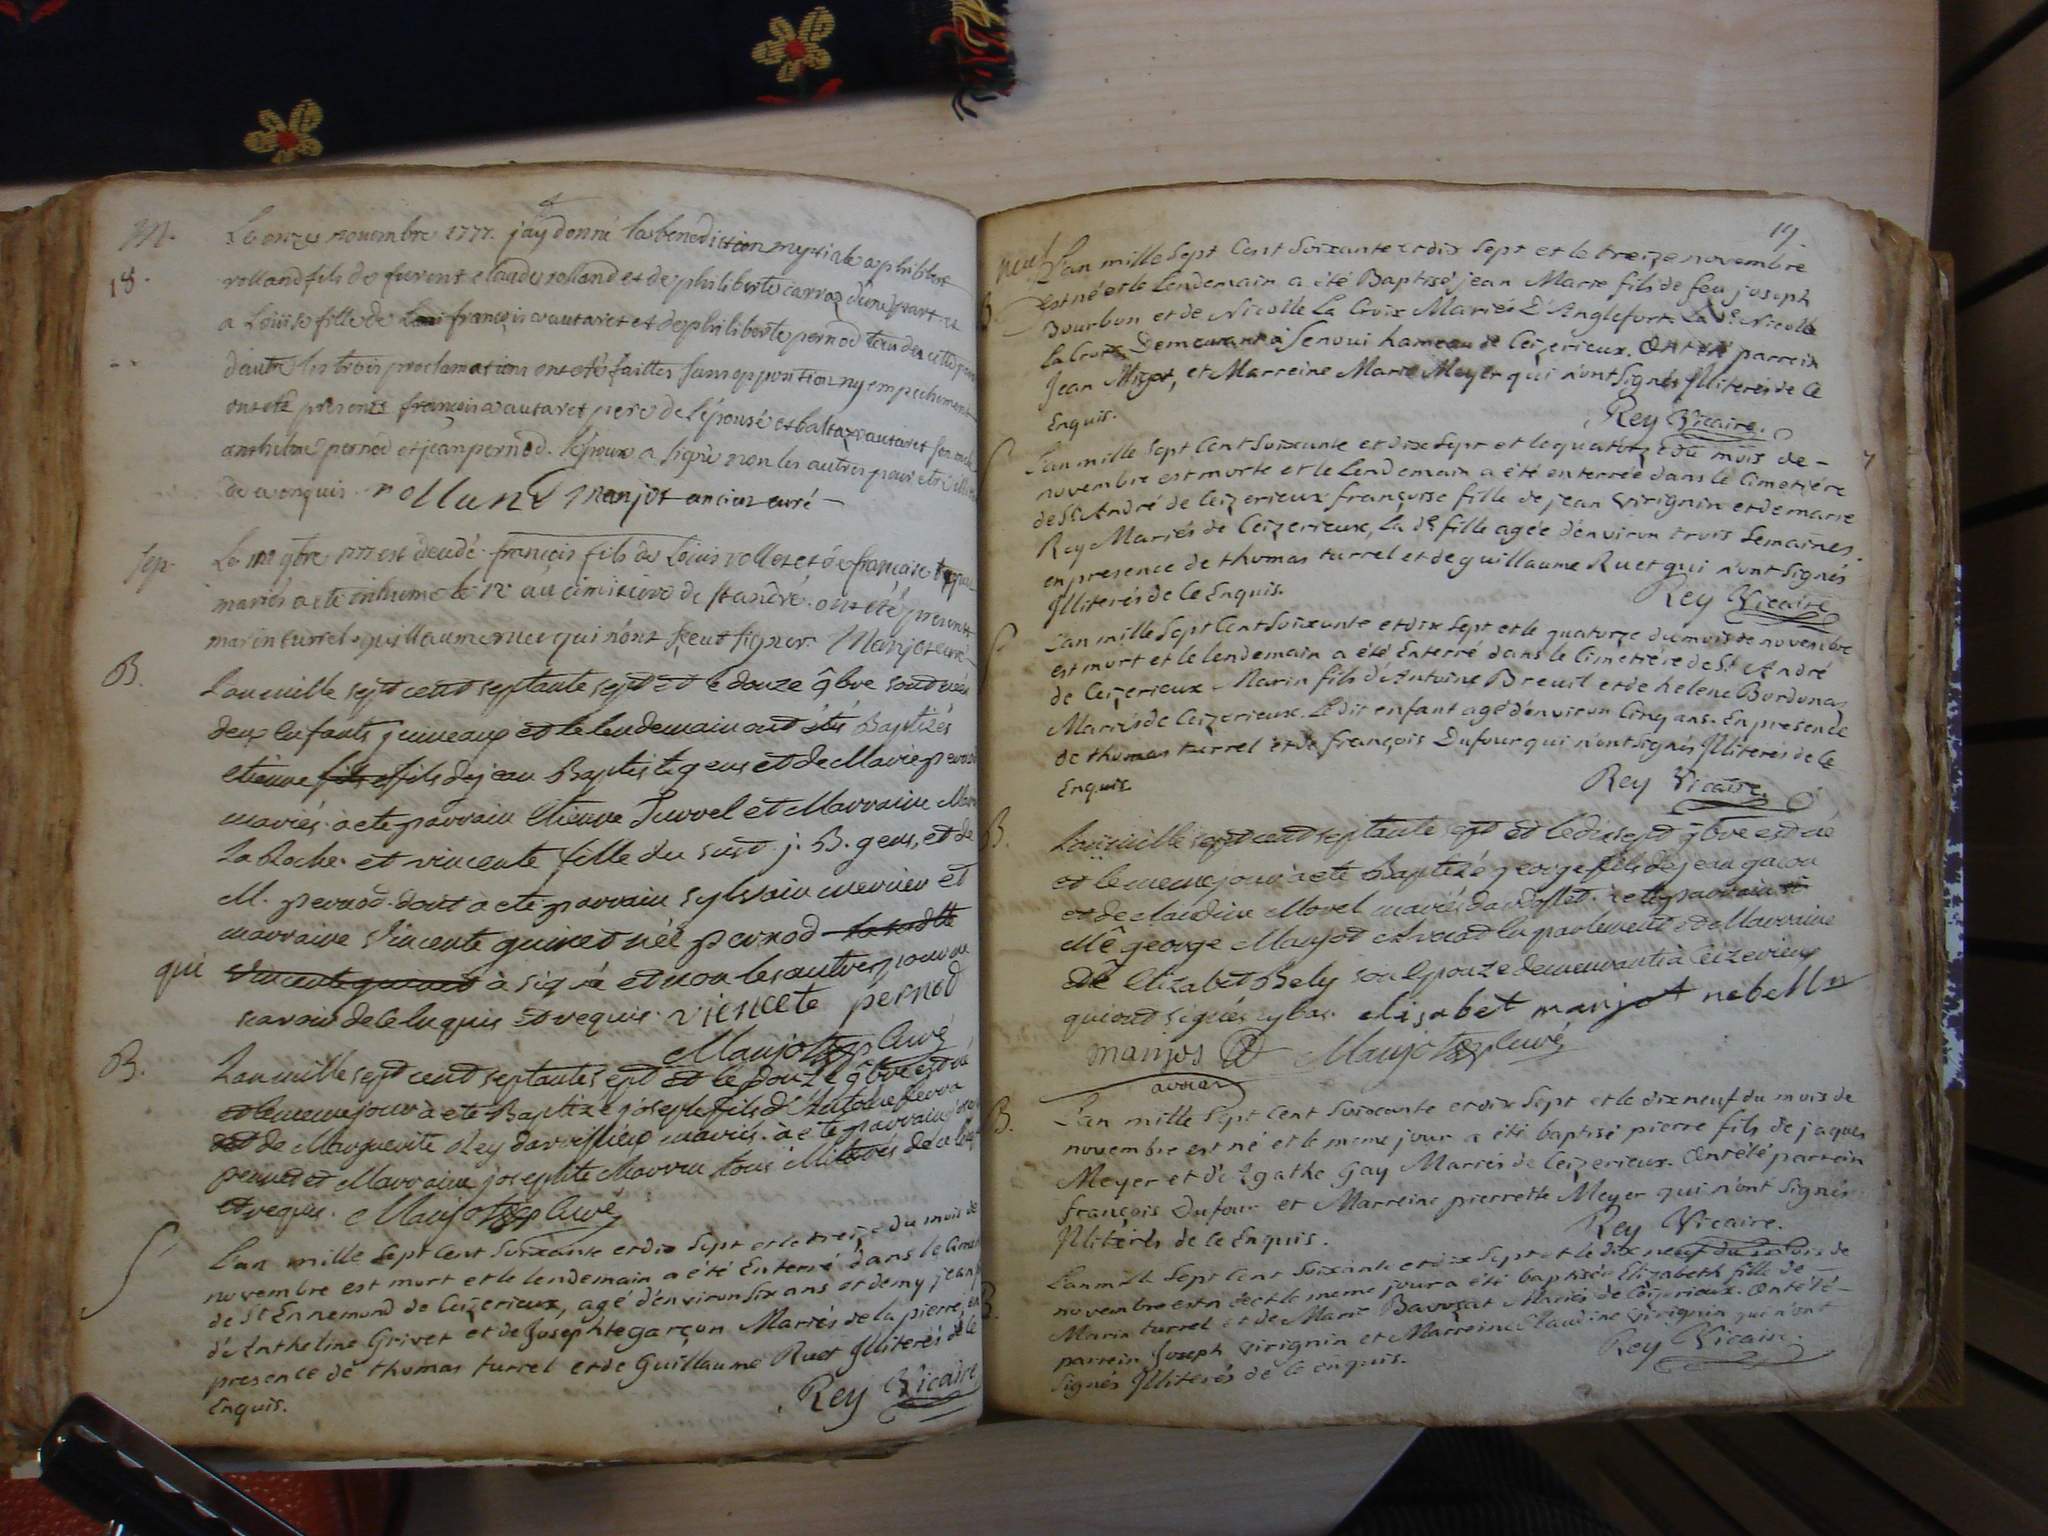 M.
18.
Le onze novembre 1777. j'ay donné la benediction nuptiale a philibert
rolland fils de furent claude rolland et de philiberte carraz d'une part et
a Loüise fille de francois vautaret et de philiberte pernod
d'autre les trois proclamations ont eté faittes sans opposition ny empechement
ont eté presents francois vautaret pere de l'épouse et baltazar vautaret son oncle
anthelme pernod et jean pernod. l'époux a signé non les autres pour etre
de ce enquis. rolland Manjot ancien curé
sep.
Le 9bre 1777 est décédé francois fils de Loüis rollet et de françoise
mariés a eté inhumé le 12 au cimitiere de st andré. ont eté presents
marin turrel guillaume ruet qui n'ont sçeut signer. Manjot curé
B.
L'an mille sept cent septante sept et le douze 9bre sont nés
deux enfants jumeaux et le lendemain ont étés Baptizés
etienne fils de jean Baptiste gens et de Marie pernod
mariés. a eté parrain Etienne Turrel et Marraine Marie
La Roche. et vincente fille du susd. j. B. gens, et de
M. pernod. dont a eté parrain sylvain mernier et
marraine Vincente guinet née pernod
qui à signé et non les autres pour ne
scavoir de ce enquis et requis. viencete pernod
Manjot curé
B.
L'an mille sept cent septante sept et le douze 9bre est né
et le meme jour à eté Baptizé joseph fils d'Antoine
et de Marguerite Rey d'arvillieu mariés. à eté parrain joseph
pernet et Marraine josephte Marron tous illiterés de ce
et requis. Manjot curé
S
L'an mille Sept Cent Soixante et dix Sept et le treize du mois de
novembre est mort et le lendemain a été Enterré dans le
de St Ennemond de Ceizerieux, agé d'environ six ans et demy jean
d'Anthelme Grivet et de Josephte garçon Mariés de la pierre, en
presence de thomas turrel et de Guillaume Ruet Illiterés de ce
Enquis.
Rey Vicaire
19.
neuf
B
L'an mille Sept Cent Soixante et dix Sept et le treize novembre
est né et le Lendemain a été Baptisé jean Marie fils de feu joseph
Bourbon et de Nicolle La Croix Mariés D'Anglefort. La de Nicolle
la Croix Demeurant à Senoui hameau de Ceizerieux. Ont été parrein
Jean Migot, et Marreine Marie Meyer qui n'ont Signés Illiterés de Ce
Enquis.
Rey Vicaire.
S
L'an mille Sept Cent Soixante et dix Sept et le quatorze du mois de-
novembre est morte et le Lendemain a été enterrée dans le Cimetiére
de St André de Ceizerieux françoise fille de jean Virignin et de marie
Rey Mariés de Ceizerieux, La de fille agée d'environ trois Semaines.
en presence de thomas turrel et de guillaume Ruet qui n'ont Signés
Illiterés de Ce Enquis.
Rey Vicaire
S
L'an mille Sept Cent Soixante et dix Sept et le quatorze du mois de novembre
est mort et le lendemain a été Enterré dans le Cimetiére de St André
de Ceizerieux Marin fils d'Antoine Breuil et de helene Bordonas
Mariés de Ceizerieux. Ledit enfant agé d'environ Cinq ans. En presence
de thomas turrel et de françois Dufour qui n'ont Signés Illiterés de Ce
Enquis.
Rey Vicaire.
B.
L'an mille sept cent septante sept et le dix sept 9bre est né
et le meme jour à eté Baptizé george fils de jean
et de claudine Morel mariés a eté parrain
Me george Manjot avocat au parlement et Marraine
De Elizabet Bely son Epouze demeurants à Ceizerieux
qui ont signés cy bas. elisabet manjot ne belly
manjos Manjot curé
avocat
B.
L'an mille Sept Cent Soixante et dix Sept et le dix neuf du mois de
novembre est né et le meme jour a été baptisé pierre fils de jaques
Meyer et d'Agathe Gay Mariés de Ceizerieux. Ont été parrein
françois Dufour et Marreine pierrette Meyer qui n'ont Signés
Illiterés de ce Enquis.
Rey Vicaire.
B.
L'an mille Sept Cent Soixante et dix Sept et le dix neuf du mois de
novembre est née et le meme jour a été baptisée Elizabeth fille de-
Marin turrel et de Marie Bavozat Mariés de Ceizerieux. Ont été-
parrein Joseph Virignin et Marreine Claudine Virignin qui n'ont
Signés Illiterés de Ce enquis.
Rey Vicaire.